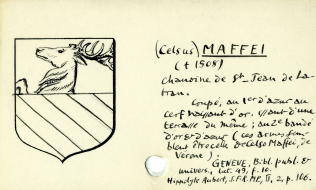 (Celsus) MAFFEI
(† 1508)
Chanoine de St Jean de La-
tran.
Coupé, au 1er d'azur au
cerf naissant d'or, issant d'une
terrasse du même; au 2e bandé
d'or et d'azur (ces armes sem-
blent être celles de Celso Maffei, de
Verone).
GENEVE, Bibl. publ. et
univers., Lat. 49, f. 10.
Hippolyte Aubert, S.F.R.MP., II, 2, p. 166.